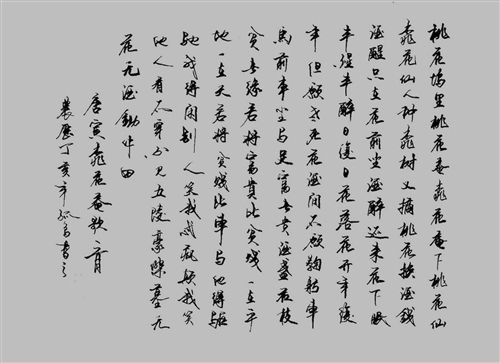 桃花塢里桃花庵桃花庵下桃花仙
桃花仙人种桃树又摘桃花换酒錢
酒醒只在花前坐酒醉还来花下眠
半醒半醉日復日花落花开年復
年但願老死花酒间不願鞠躬車
馬前車塵馬足富者貴酒盏花枝
贫者缘若将富貴比贫贱一在平
地一在天若将贫贱比車馬他得驱
驰我得闲别人笑我忒疯癫我笑
他人看不穿不见五陵豪傑墓无
花无酒锄作田
唐寅桃花庵歌一首
農歷丁亥年书之